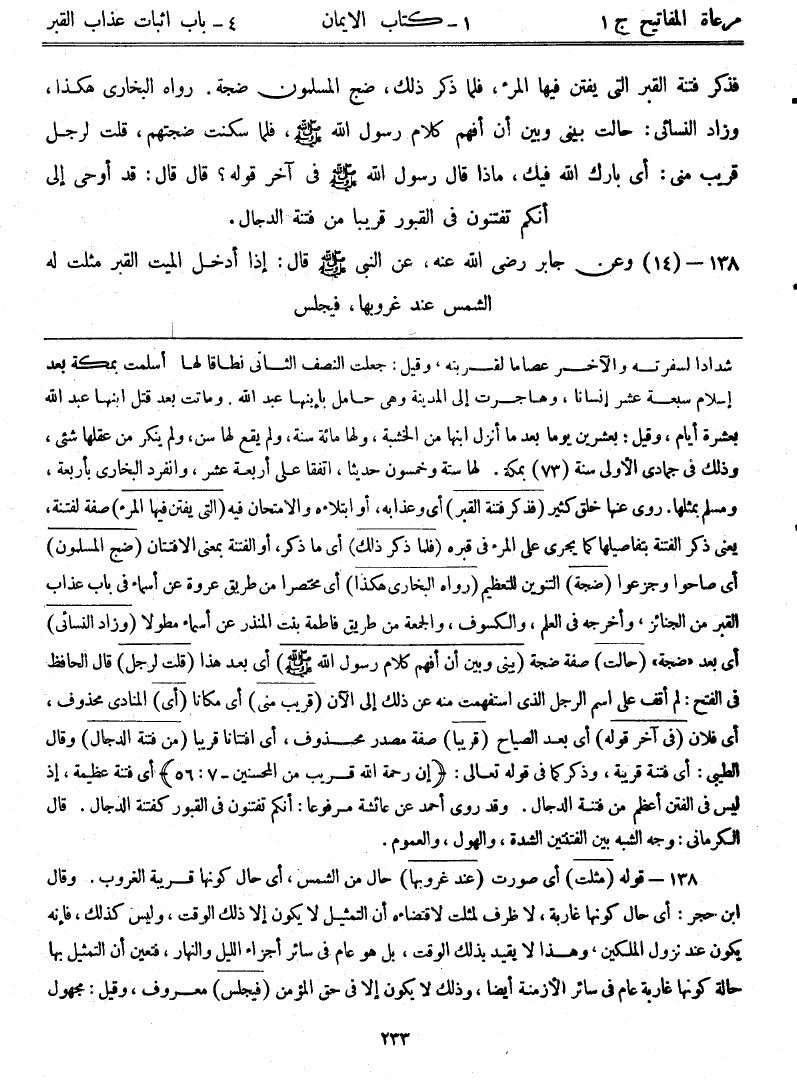 مرعاة المفاتيح ج ١ ١ - كتاب الايمان ٤ - باب اثبات عذاب القبر
فذكر فتنة القبر التى يفتن فيها المرء، فلما ذكر ذلك، ضج المسلمون ضجة. رواه البخارى هكذا،
وزاد النسائى: حالت بينى وبين أن أفهم كلام رسول الله ﷺ، فلما سكنت ضجتهم، قلت لرجل
قريب منى: أى بارك الله فيك، ماذا قال رسول الله ﷺ فى آخر قوله؟ قال قال: قد أوحى إلى
أنكم تفتنون فى القبور قريبا من فتنة الدجال.
١٣٨ - (١٤) وعن جابر رضى الله عنه، عن النبى ﷺ قال: إذا أدخل الميت القبر مثلت له
الشمس عند غروبها، فيجلس
شدادا لسفرته والآخر عصاما لقربته، وقيل: جعلت النصف الثانى نطاقا لها أسلمت بمكة بعد
إسلام سبعة عشر إنسانا، وهاجرت إلى المدينة وهى حامل بإبنها عبد الله. وماتت بعد قتل ابنها عبد الله
بعشرة أيام، وقيل: بعشرين يوما بعد ما أنزل ابنها من الخشبة، ولها مائة سنة، ولم يقع لها سن، ولم ينكر من عقلها شئى،
وذلك فى جمادى الأولى سنة (٧٣) بمكة. لها ستة وخمسون حديثا، اتفقا على أربعة عشر، وانفرد البخارى بأربعة،
ومسلم بمثلها. روى عنها خلق كثير (فذكر فتنة القبر) أى وعذابه، أو ابتلاءه والامتحان فيه (التى يفتن فيها المرء) صفة لفتنة،
يعنى ذكر الفتنة بتفاصيلها كما يجرى على المرء فى قبره (فلما ذكر ذلك) أى ما ذكر، أو الفتنة بمعنى الافتتان (ضج المسلمون)
أى صاحوا وجزعوا (ضجة) التنوين للتعظيم (رواه البخارى هكذا) أى مختصرا من طريق عروة عن أسماء فى باب عذاب
القبر من الجنائز، وأخرجه فى العلم، والكسوف، والجمعة من طريق فاطمة بنت المنذر عن أسماء مطولا (وزاد النسائى)
أى بعد «ضجة» (حالت) صفة ضجة (بينى وبين أن أفهم كلام رسول الله ﷺ) أى بعد هذا (قلت لرجل) قال الحافظ
فى الفتح: لم أقف على اسم الرجل الذى استفهمت منه عن ذلك إلى الآن (قريب منى) أى مكانا (أى) المنادى محذوف،
أى فلان (فى آخر قوله) أى بعد الصياح (قريبا) صفة مصدر محذوف، أى افتتانا قريبا (من فتنة الدجال) وقال
الطيبى: أى فتنة قريبة، وذكر كما فى قوله تعالى: ﴿إن رحمة الله قريب من المحسنين - ٧: ٥٦﴾ أى فتنة عظيمة، إذ
ليس فى الفتن أعظم من فتنة الدجال. وقد روى أحمد عن عائشة مرفوعا: أنكم تفتنون فى القبور كفتنة الدجال. قال
الكرمانى: وجه الشبه بين الفتنتين الشدة، والهول، والعموم.
١٣٨ - قوله (مثلت) أى صورت (عند غروبها) حال من الشمس، أى حال كونها قريبة الغروب. وقال
ابن حجر: أى حال كونها غاربة، لا ظرف لمثلت لاقتضاءه أن التمثيل لا يكون إلا ذلك الوقت، وليس كذلك، فإنه
يكون عند نزول الملكين، وهذا لا يقيد بذلك الوقت، بل هو عام فى سائر أجزاء الليل والنهار، فتعين أن التمثيل بها
حالة كونها غاربة عام فى سائر الأزمنة أيضا، وذلك لا يكون إلا فى حق المؤمن (فيجلس) معروف، وقيل: مجهول
٢٣٣